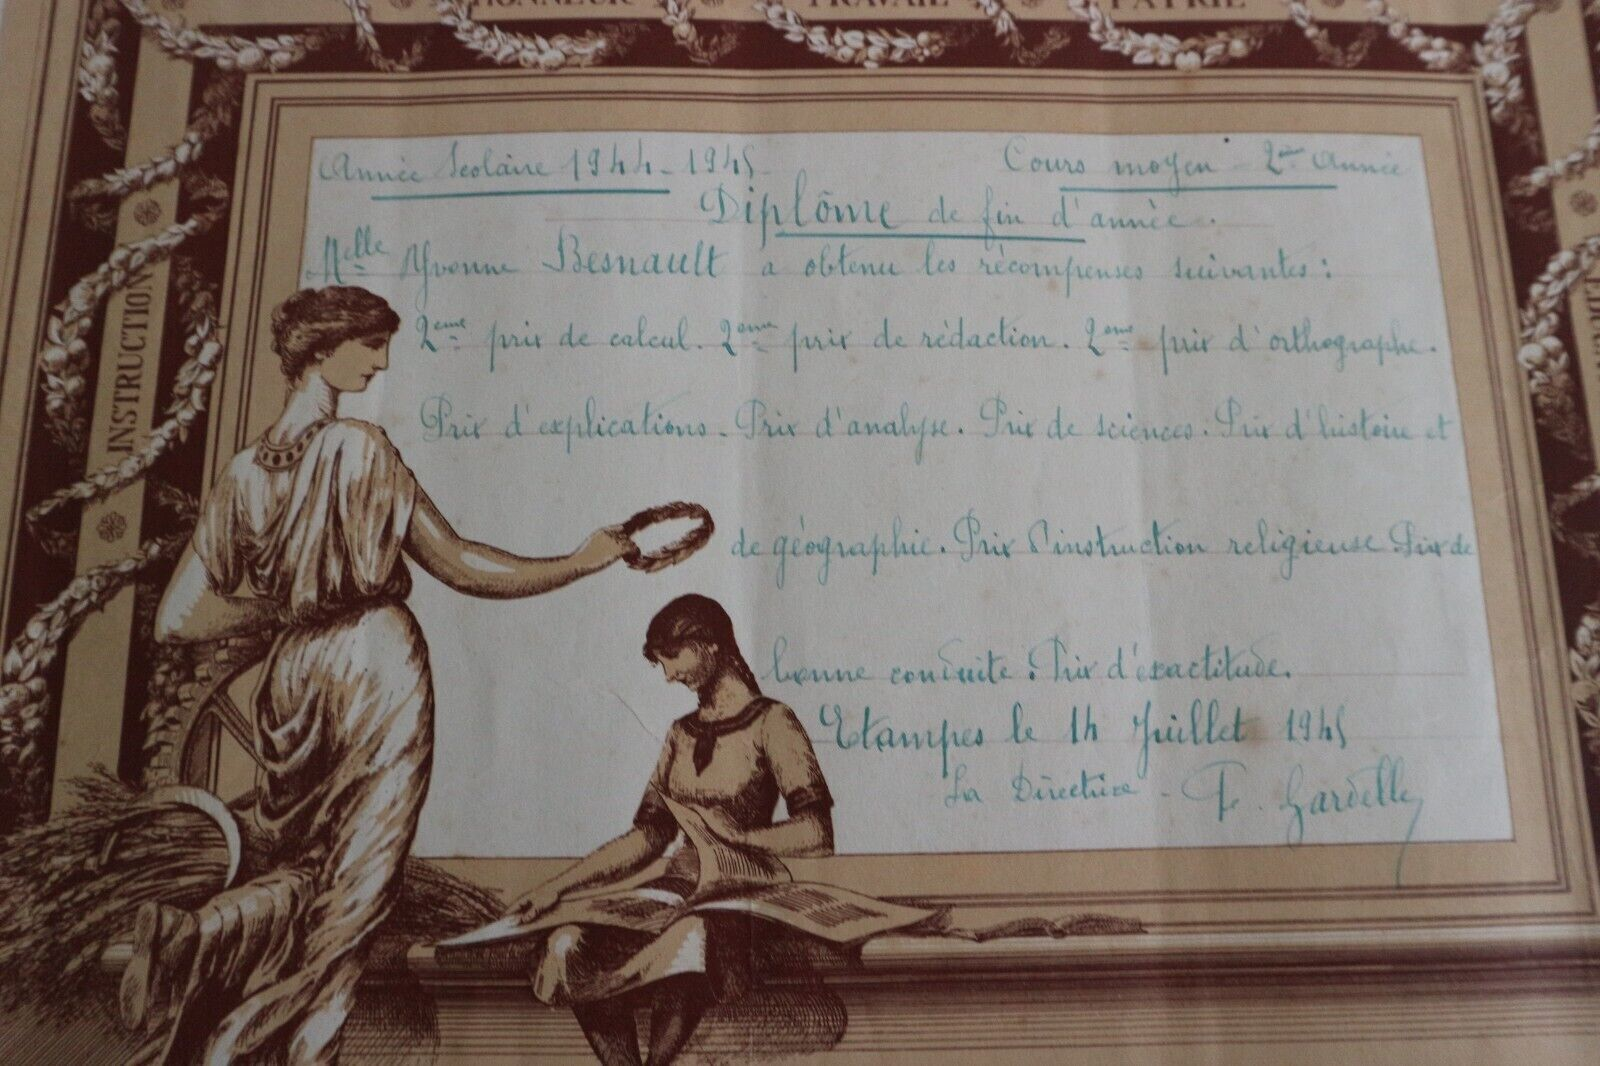 HONNEUR TRAVAIL PATRIE
INSTRUCTION
Année Scolaire 1944-1945 Cours moyen - 2ème Année
Diplôme de fin d'année.
Melle Yvonne Besnault a obtenu les récompenses suivantes :
2ème prix de calcul. 2ème prix de rédaction. 2ème prix d'orthographe.
Prix d'explications. Prix d'analyse. Prix de sciences. Prix d'histoire et
de géographie. Prix d'instruction religieuse. Prix de
bonne conduite. Prix d'exactitude.
Etampes le 14 Juillet 1945
La Directrice - Gardelle